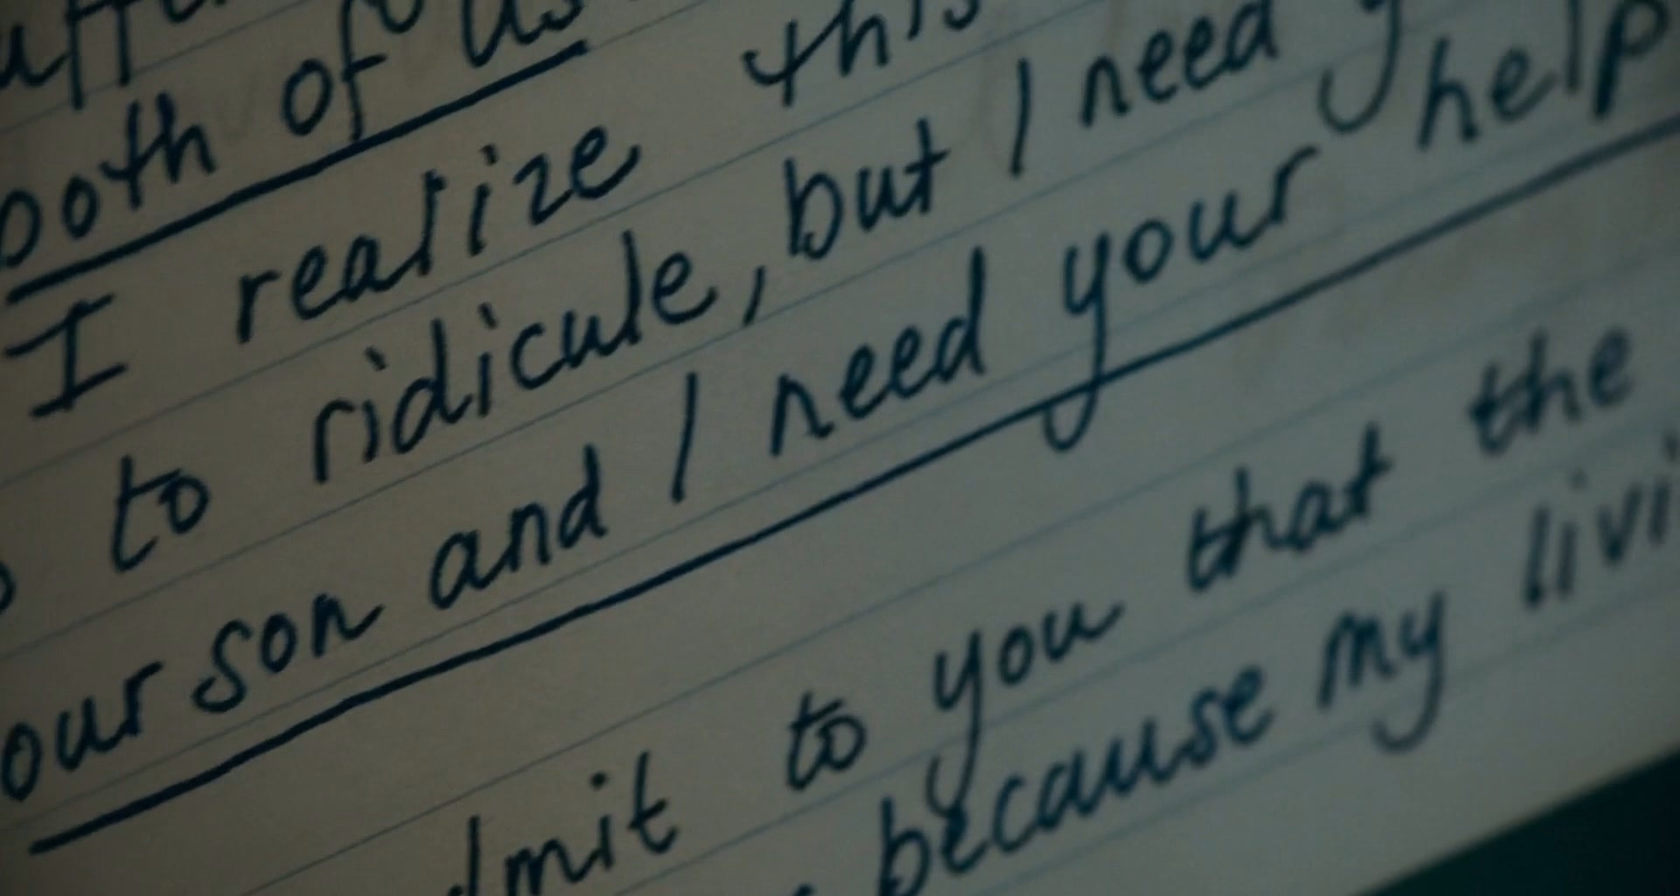 both of us
I realize this
to ridicule, but I need
our son and I need your help
to you that the
because my